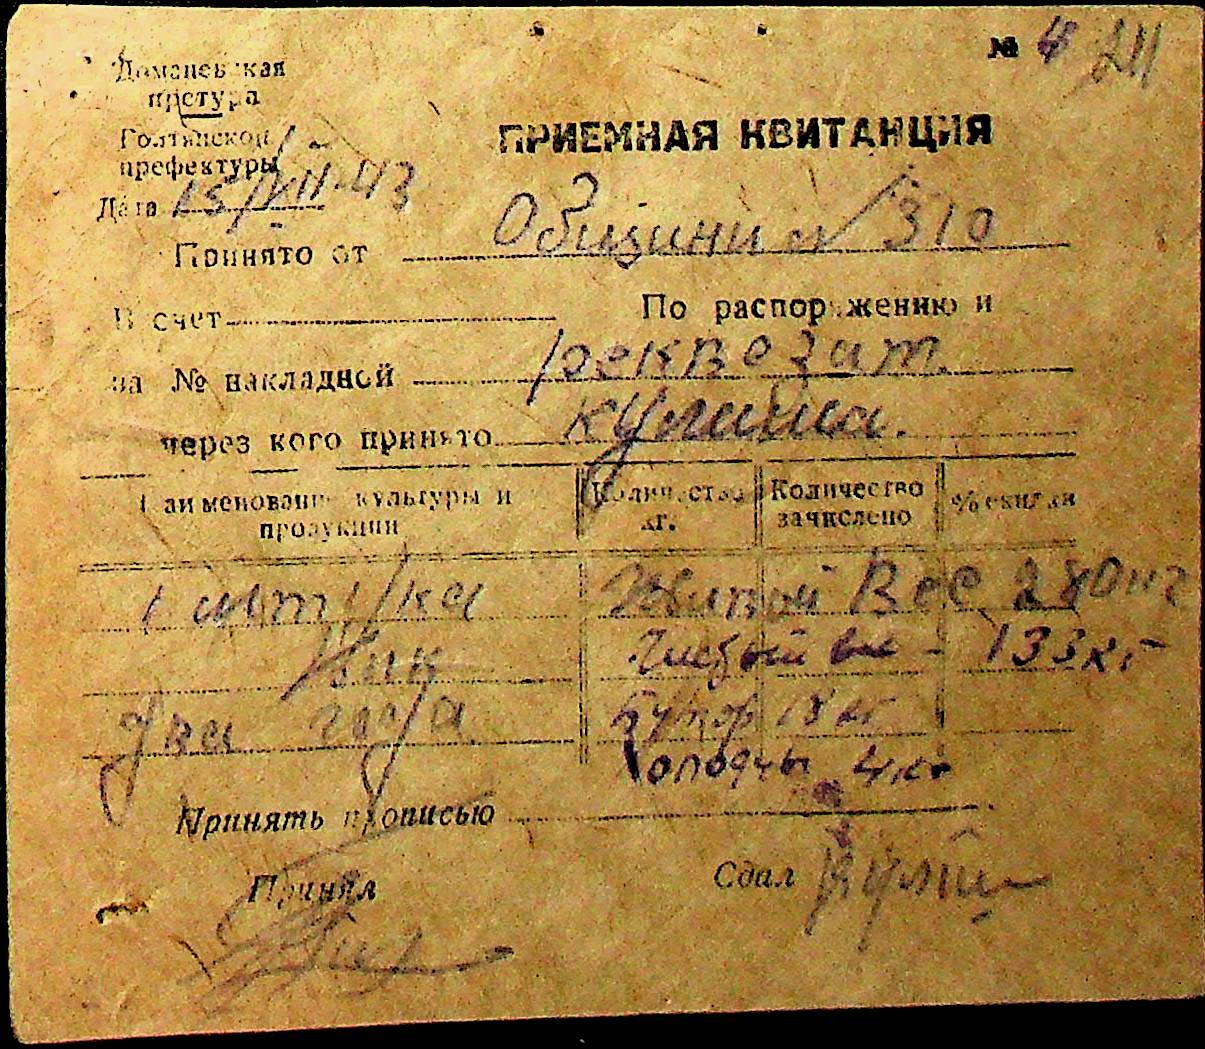 № 4
Доманевская
претура
Голтянской
префектуры
ПРИЕМНАЯ КВИТАНЦИЯ
Дата 15/VIII-43
Принято от Общини № 310
В счет По распоряжению и
на № накладной реквезат.
через кого принято
Наименование культуры и продукции Количество кг. Количество зачислено % скидки
1 штука Живой Вес 280 кг
бик Чистый вес - 133 кг
два года 18 кг
4 кг
Принять прописью
Принял Сдал